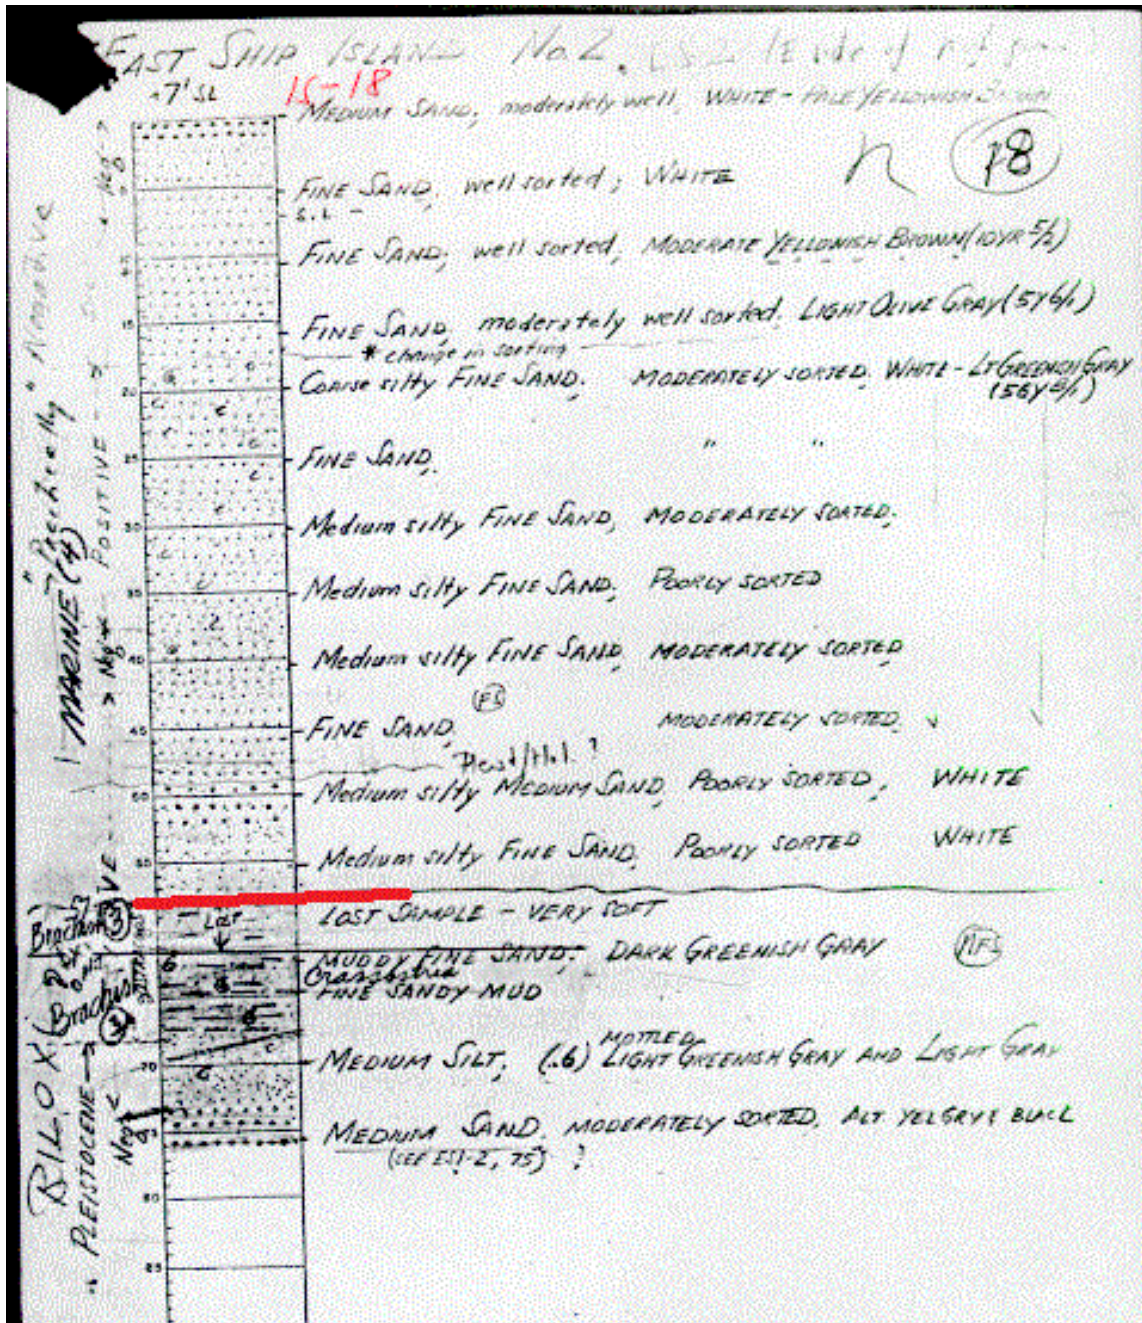 EAST SHIP ISLAND No. 2.
+7' SL 15-18
MEDIUM SAND, moderately well, WHITE - PALE YELLOWISH BROWN
18
FINE SAND, well sorted; WHITE
S.L -
FINE SAND; well sorted, MODERATE YELLOWISH BROWN (10YR 5/2)
FINE SAND, moderately well sorted, LIGHT OLIVE GRAY (5Y6/1)
* change in sorting
Coarse silty FINE SAND. MODERATELY SORTED, WHITE - LT GREENISH GRAY
(5GY 8/1)
FINE SAND, " "
Medium silty FINE SAND, MODERATELY SORTED.
Medium silty FINE SAND, POORLY SORTED
Medium silty FINE SAND, MODERATELY SORTED
FS
FINE SAND, MODERATELY SORTED
Pleist/Hol. ?
Medium silty MEDIUM SAND, POORLY SORTED, WHITE
Medium silty FINE SAND, POORLY SORTED WHITE
LOST SAMPLE - VERY SOFT
LOST
MUDDY FINE SAND. DARK GREENISH GRAY
Crassostrea
FINE SANDY MUD
MOTTLED
MEDIUM SILT, (.6) LIGHT GREENISH GRAY AND LIGHT GRAY
MEDIUM SAND, MODERATELY SORTED, ALT. YEL GRY & BLACK
?
15
20
25
30
35
40
45
50
70
80
85
MARINE (4)
POSITIVE
Neg
Brackish 3
Brackish
3
BILOXI
PLEISTOCENE
Neg